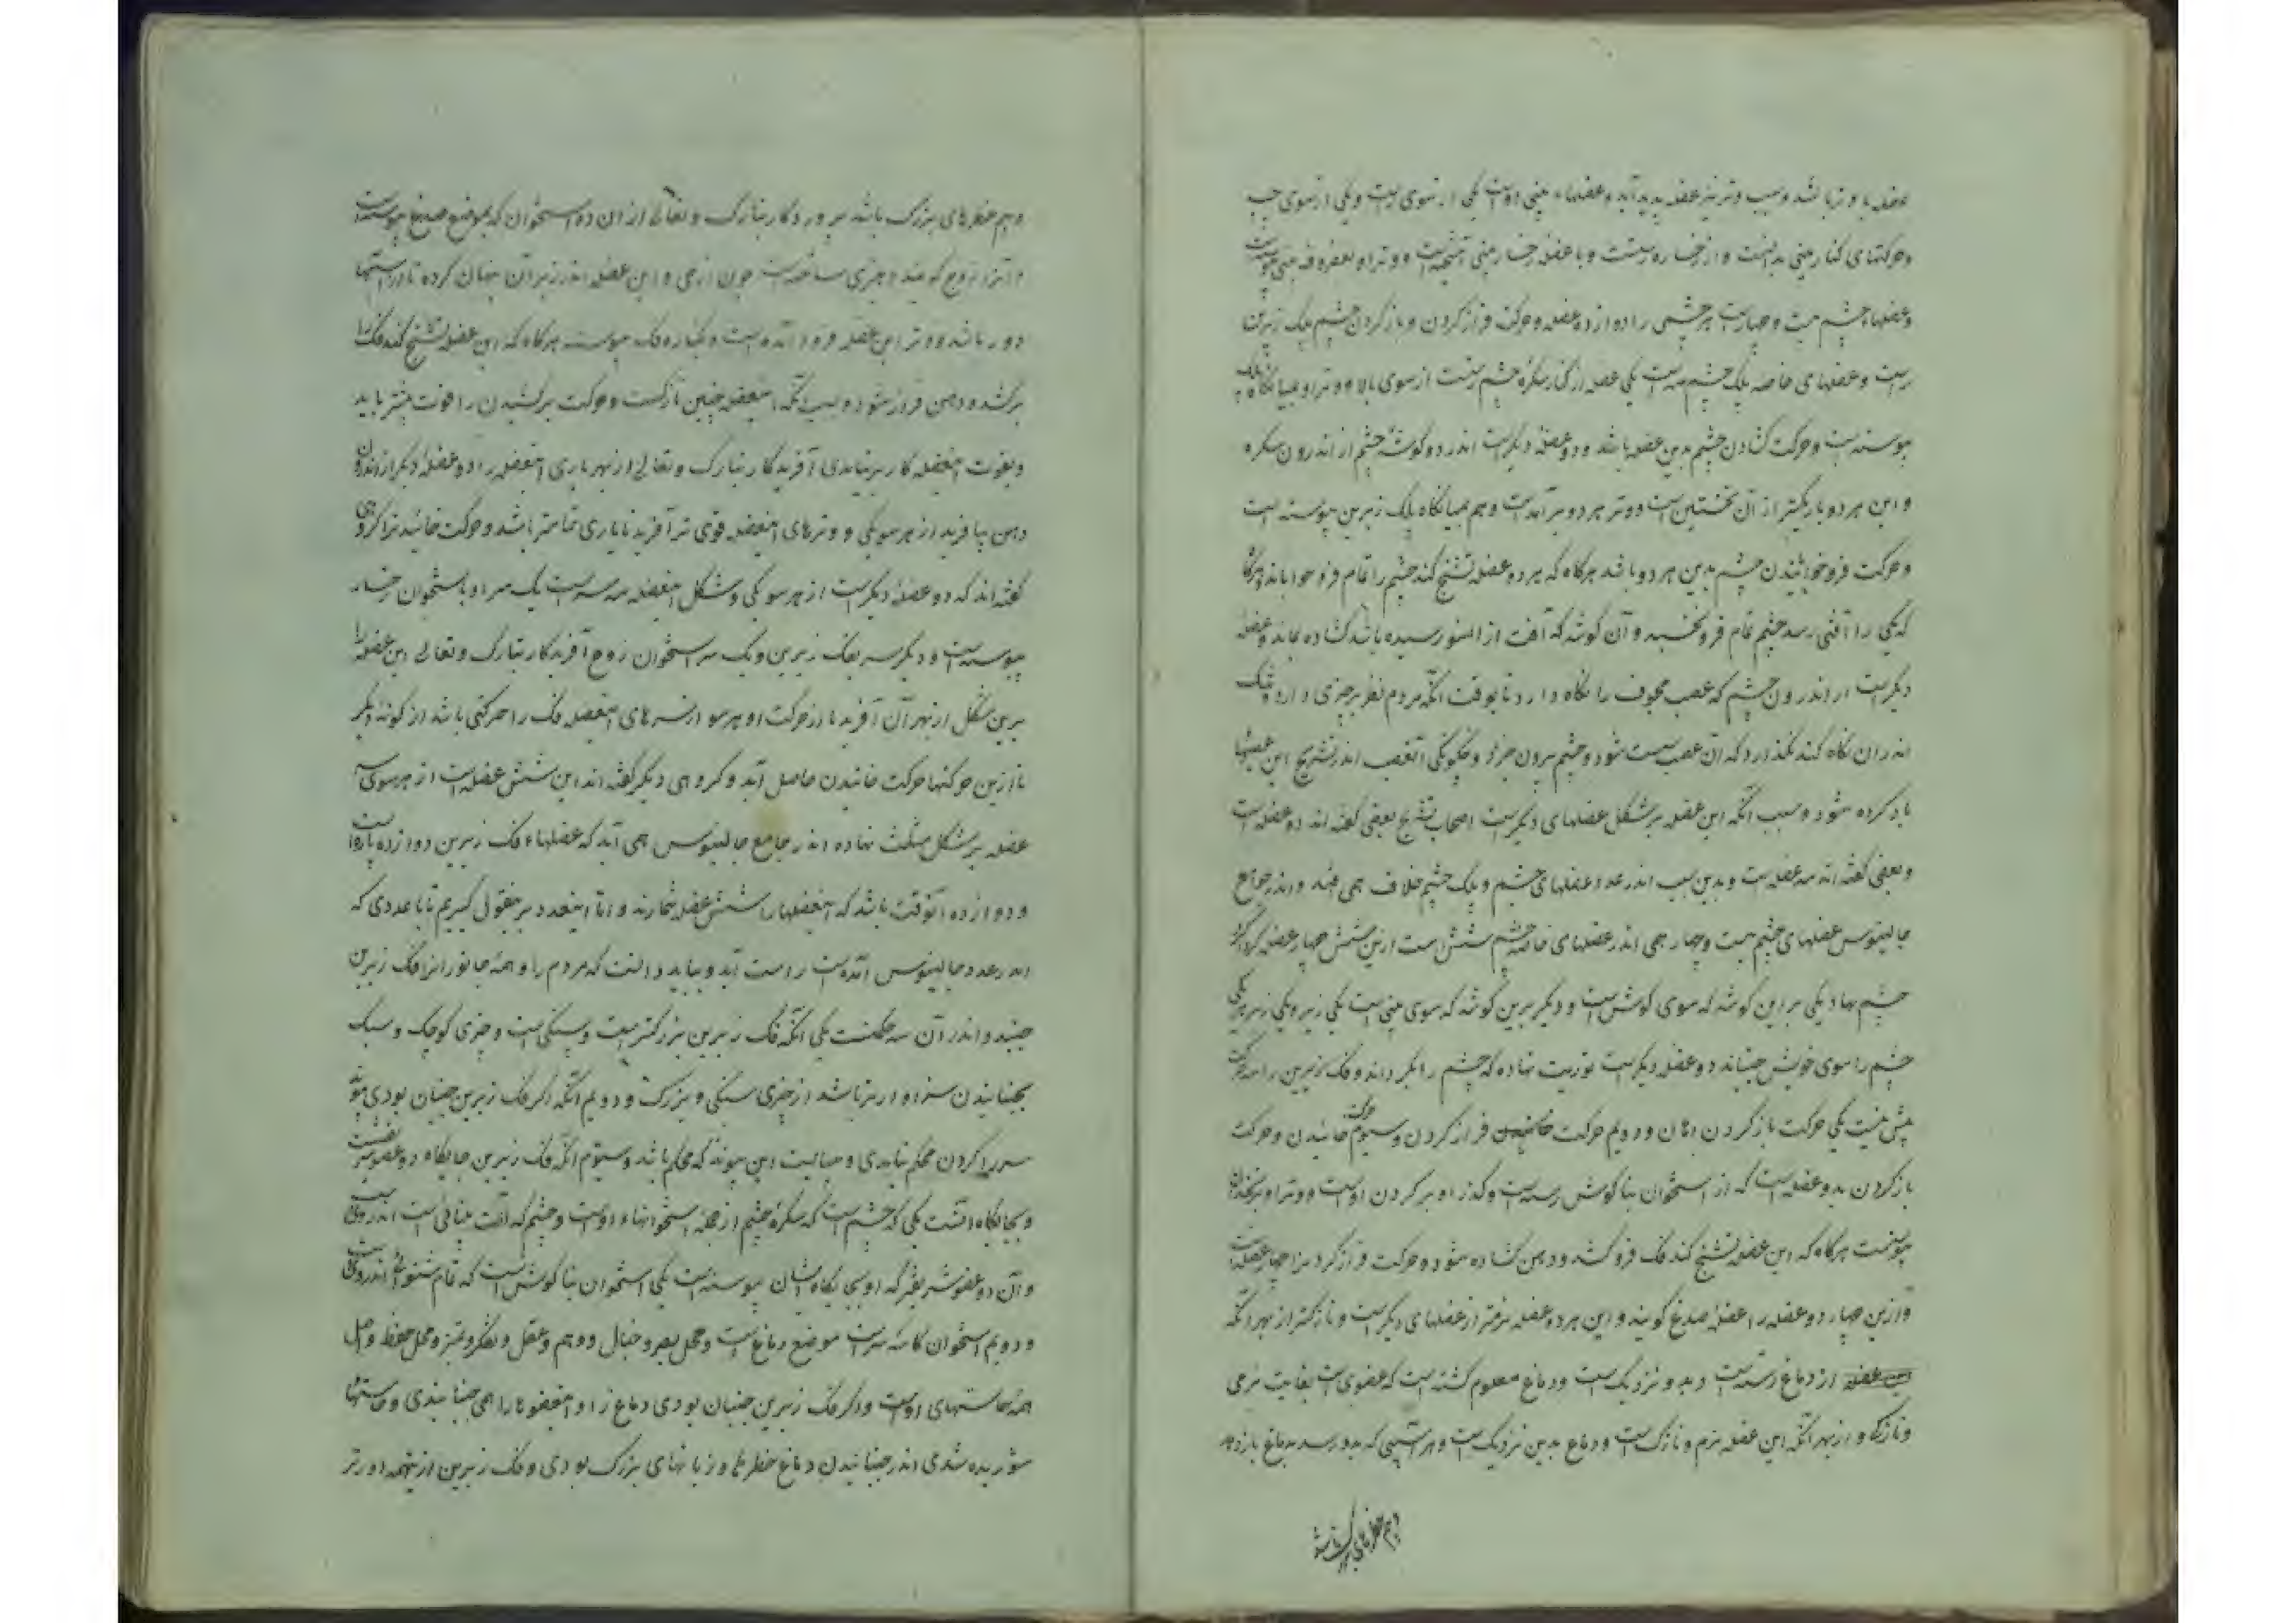 عضله با وتر باشد و سبب وتر نیز عضله پدید آید و عضلهاء بینی دواست یکی از سوی راست و یکی از سوی چپ
و حرکتهای کنار بینی بدانست و از رخساره رستست و با عضله رخسار بینی آمیخته است و وتر او بغضروف بینی پیوسته است
و عضلهاء چشم بیست و چهار است هر چشمی را دوازده عضله و حرکت فراز کردن و باز کردن چشم پلک زبرین
راست و عضلهای خاصه پلک چشم سه است یکی عضله از کنار سکره چشم رستست از سوی بالا و وتر او بمیانگاه پلک
پیوسته است و حرکت کشادن چشم بدین عضله باشد و دو عضله دیگر است اندر دو گوشه چشم از اندرون سکره
و این هر دو باریکتر از آن نخستین است و وتر هر دو برآمده است و هم بمیانگاه پلک زبرین پیوسته است
و حرکت فرو خوابانیدن چشم بدین هر دو باشد هرگاه که هر دو عضله تشنج کند چشم را تمام فرو خواباند و هرگاه
که یکی را آفتی رسد چشم تمام فرو نخسبد و آن گوشه که آفت از آنسو رسیده باشد کشاده بماند و عضله
دیگر است از اندرون چشم که عصب مجوف را نگاه دارد تا بوقت آنکه مردم نظر بر چیزی دارد و تنگ
اندر آن نگاه کند نگذارد که آن عصب سست شود و چشم بیرون خیزد و چگونگی آن عصب اندر تشریح این عصبها
یاد کرده شود و سبب آنکه این عضله بر شکل عضلهای دیگر است اصحاب تشریح بعضی گفته اند دو عضله است
و بعضی گفته اند سه عضله است و بدین سبب اندر عدد عضلهای چشم و پلک چشم خلاف همی افتد و اندر جوامع
جالینوس عضلهای چشم بیست و چهار همی اندر عضلهای خاصه چشم شش است ازین شش چهار عضله گرداگرد
چشم نهاد یکی بر این گوشه که سوی گوش است و دیگر برین گوشه که سوی بینی است یکی زبر و یکی زیر هر یکی
چشم را سوی خویش جنباند و دو عضله دیگر است بوریب نهاده که چشم را بگرداند و فک زیرین را سه حرکت
بیش نیست یکی حرکت باز کردن دهان و دویم حرکت فراز کردن و سیوم حرکت خائیدن و حرکت
باز کردن بدو عضله است که از استخوان بناگوش رسته است و گذر او بر گردن اوست و وتر او بزنخدان
پیوسته است هرگاه که این عضله تشنج کند فک فرو کشد و دهن کشاده شود و حرکت فراز کردن را چهار عضله است
و ازین چهار دو عضله را عضله صدغ گویند و این هر دو عضله نرمتر از عضلهای دیگر است و نازکتر از بهر آنکه
این عضله از دماغ رسته است و بدو نزدیک است و دماغ معلوم گشته است که عضوی است بغایت نرمی
و نازکی و از بهر آنکه این عضله نرم و نازک است و دماغ بدین نزدیک است و هر آسیبی که بدو رسد بدماغ باز دهد
و بیم خطرهای بزرگ باشد
و بیم خطرهای بزرگ باشد پروردگار تبارک و تعالی از آن دو استخوان که بموضع صدغ پیوسته است
و آنرا زوج گویند چیزی ساخته است چون ازجی و این عضله اندر زیر آن پنهان کرده تا از آسیبها
دور باشد و وتر این عضله فرود آمده است و بکناره فک پیوسته هرگاه که این عضله تشنج کند فک را
برکشد و دهن فراز شود و سبب آنکه این عضله چنین نازکست و حرکت برکشیدن را قوت بیشتر باید
و بقوت این عضله کار برنیایدی آفریدگار تبارک و تعالی از بهر یاری این عضله را دو عضله دیگر از اندرون
دهن بیافرید از هر سو یکی و وترهای این عضله قوی تر آفرید تا یاری تمامتر باشد و حرکت خائیدن را گروهی
گفته اند که دو عضله دیگر است از هر سو یکی و شکل این عضله سه سر است یک سر او باستخوان رخسار
پیوسته است و دیگر سر بفک زیرین و یک سر باستخوان زوج آفریدگار تبارک و تعالی این عضله را
برین شکل از بهر آن آفرید تا از حرکت او هر سو از سرهای این عضله فک را حرکتی باشد از گونه دیگر
تا ازین حرکتها حرکت خائیدن حاصل آید و گروهی دیگر گفته اند این شش عضله است از هر سوی سه
عضله بر شکل مثلث نهاده اندر جامع جالینوس همی آید که عضلهاء فک زیرین دوازده پاره است
و دوازده آنوقت باشد که این عضلها را شش عضله شمارند و اما این عدد بر این قول گیریم تا با عددی که
اندر عدد جالینوس آمده است راست آید و بباید دانست که مردم را و همه جانورانرا فک زیرین
جنبد و اندر آن سه حکمتست یکی آنکه فک زبرین بزرگتر است و سنگی است و چیزی کوچک و سبک
بجنبانیدن سزاوارتر باشد از چیزی سنگی و بزرگ و دویم آنکه اگر فک زبرین جنبان بودی پیوند
سر را گردن محکم نیایدی و میبایست این پیوند که محکم باشد و سیوم آنکه فک زبرین جایگاه دو عضو شریفست
و بجایگاه انست یکی که چشم است که سکره چشم از جمله استخوانهاء اوست و چشم که آلت بینائی است اندر ویست
و آن دو عضو شریف که او بجایگاه ایشان پیوسته است یکی استخوان بناگوش است که تمام شنوائی اندر ویست
و دویم استخوان کاسه سر است موضع دماغ است و محل بصر و خیال و وهم و عقل و تفکر و تمیز و محل حفظ و اصل
همه حاستهای اوست و اگر فک زبرین جنبان بودی دماغ را و این عضوها را همی جنبانیدی و حاستها
شوریده شدی اندر جنبانیدن دماغ خطرها و زیانهای بزرگ بودی و فک زیرین ازینهمه دورتر